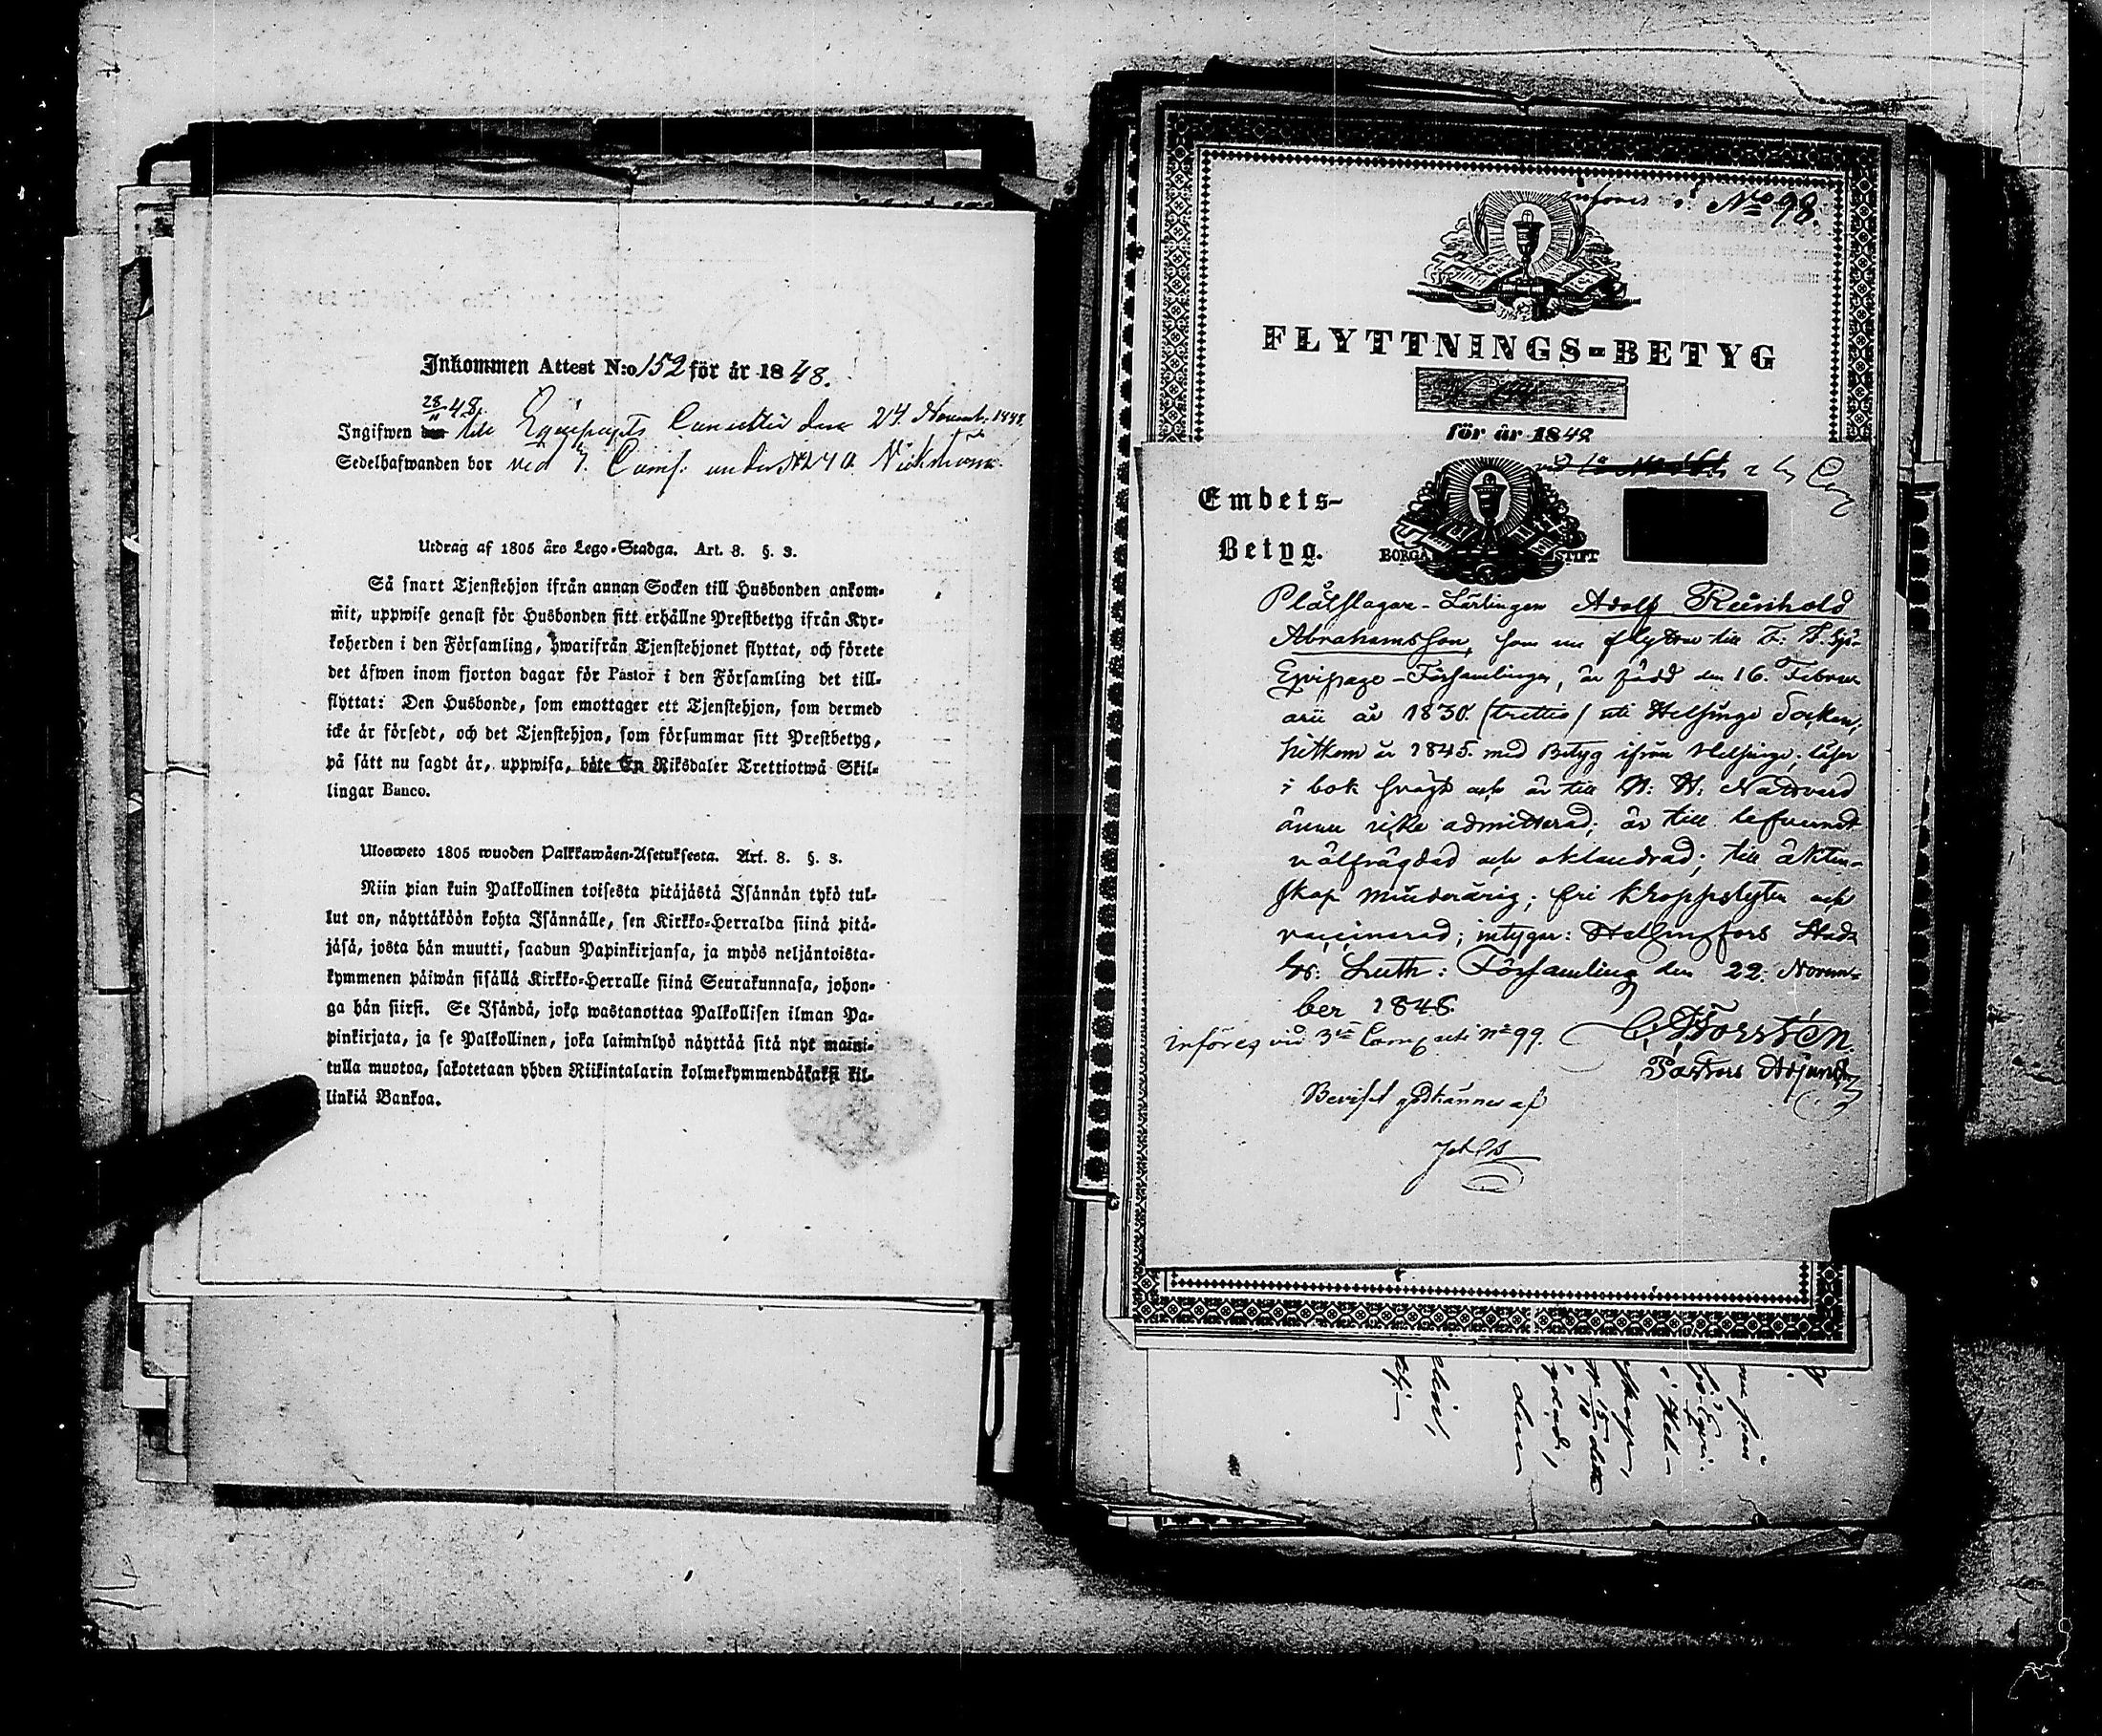 Inkommen Attest N:o 152 för år 1848.
28/11 48.
Ingifwen den till Equipagets Cancellie den 24 Novemb. 1848.
Sedelhafwanden bor ved 7. Comp. under № 240.
Utdrag af 1805 års Lego-Stadga. Art. 8. §. 3.
Så snart Tjenstehjon ifrån annan Socken till Husbonden ankom-
mit, uppwise genast för Husbonden sitt erhållne Prestbetyg ifrån Kyr-
koherden i den Församling, hwarifrån Tjenstehjonet flyttat, och förete
det åfwen inom fjorton dagar för Pastor i den Församling det till-
flyttat: Den Husbonde, som emottager ett Tjenstehjon, som dermed
icke är försedt, och det Tjenstehjon, som försummar sitt Prestbetyg,
på sätt nu sagdt är, uppwisa, böte En Riksdaler Trettiotwå Skil-
lingar Banco.
Ulosweto 1805 wuoden Palkkawäen-Asetuksesta. Art. 8. §. 3.
Niin pian kuin Palkollinen toisesta pitäjästä Isännän tykö tul-
lut on, näyttäköön kohta Isännälle, sen Kirkko-Herralda siinä pitä-
jäsä, josta hän muutti, saadun Papinkirjansa, ja myös neljäntoista-
kymmenen päiwän sisällä Kirkko-Herralle siinä Seurakunnasa, johon-
ga hän siirsi. Se Isändä, joka wastanottaa Palkollisen ilman Pa-
pinkirjata, ja se Palkollinen, joka laiminlyö näyttää sitä nyt maini-
tulla muotoa, sakotetaan yhden Riikintalarin kolmekymmendäkaksi kil-
linkiä Bankoa.
införes i № 98.
FLYTTNINGS-BETYG
för år 1848
Embets-
Betyg.
BORGÅ STIFT
Plåtslagare-Lärlingen Adolf Reinhold
Abrahamsson, som nu flyttar till F: F: Sjö-
Eqvipage-Församlingen, är född den 16. Febru-
arii år 1830. (trettio) uti Helsinge Socken;
hitkom år 1845. med Betyg ifrån Helsinge; läser
i bok svagt och är till H: H: Nattvard
ännu icke admitterad; är till lefvernet
välfrägdad och oklandrad; till äkten-
skap minderårig; fri kroppslyten och
vaccinerad; intygar: Helsingfors Stads
Sv: Luth: Församling den 22. Novem-
ber 1848.
införes vid 3de Comp. № 99.
C. Forstén
Pastors Adjunct
Beviset godkännes af